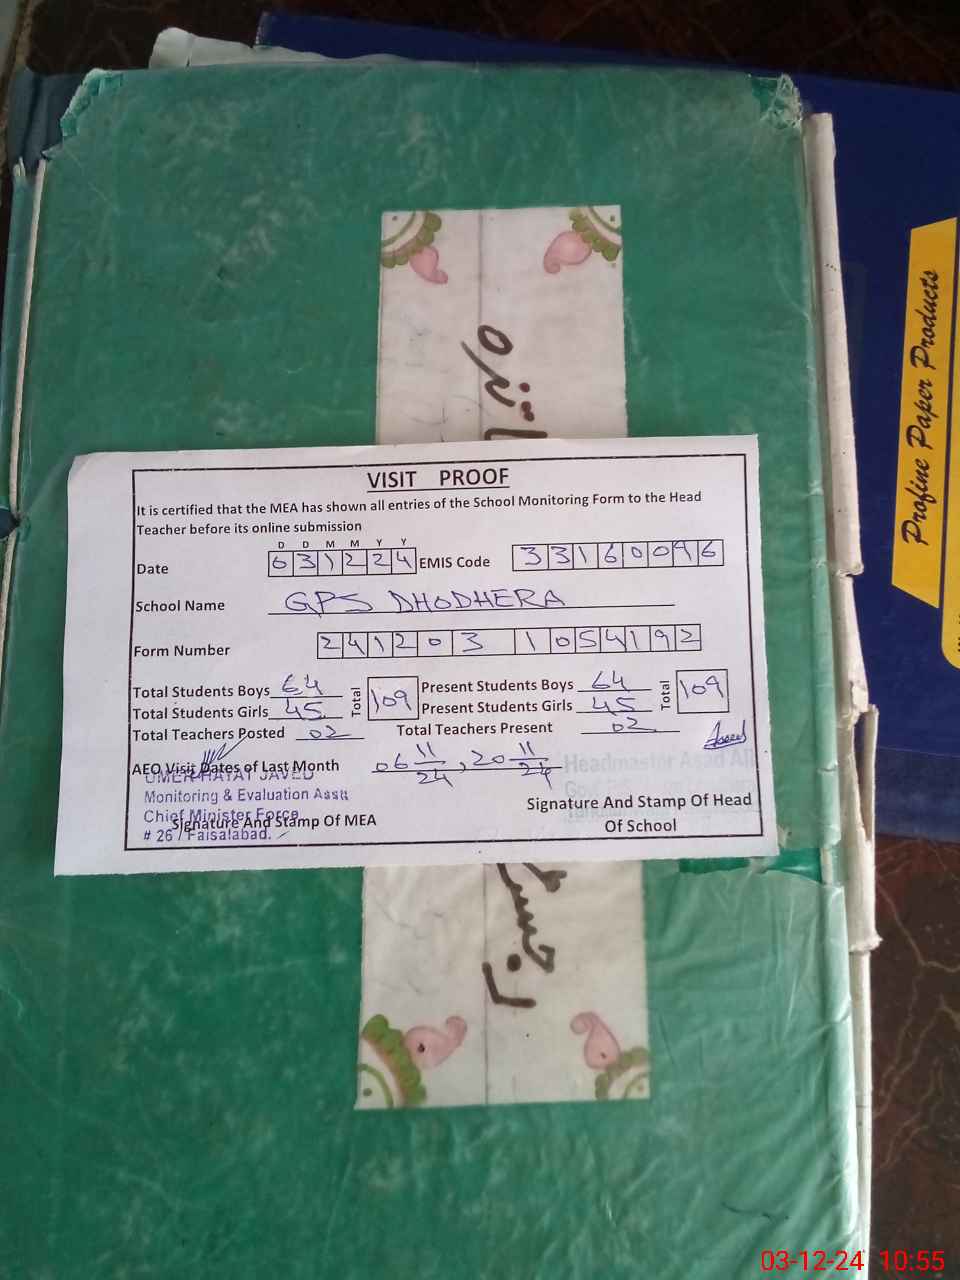 Profine Paper Products
VISIT PROOF
It is certified that the MEA has shown all entries of the School Monitoring Form to the Head
Teacher before its online submission
D D M M Y Y
Date 031224 EMIS Code 33160096
School Name GPS DHODHERA
Form Number 241203 1054192
Total Students Boys 64 Total 109 Present Students Boys 64 Total 109
Total Students Girls 45 Present Students Girls 45
Total Teachers Posted 02 Total Teachers Present 02
AEO Visit Dates of Last Month 06 11/24, 20 11/24
UMER HAYAT JAVED
Monitoring & Evaluation Asstt
Chief Minister Force
# 26 / Faisalabad.
Signature And Stamp Of MEA
Headmaster Asad Ali
Signature And Stamp Of Head
Of School
رجسٹر
03-12-24 10:55